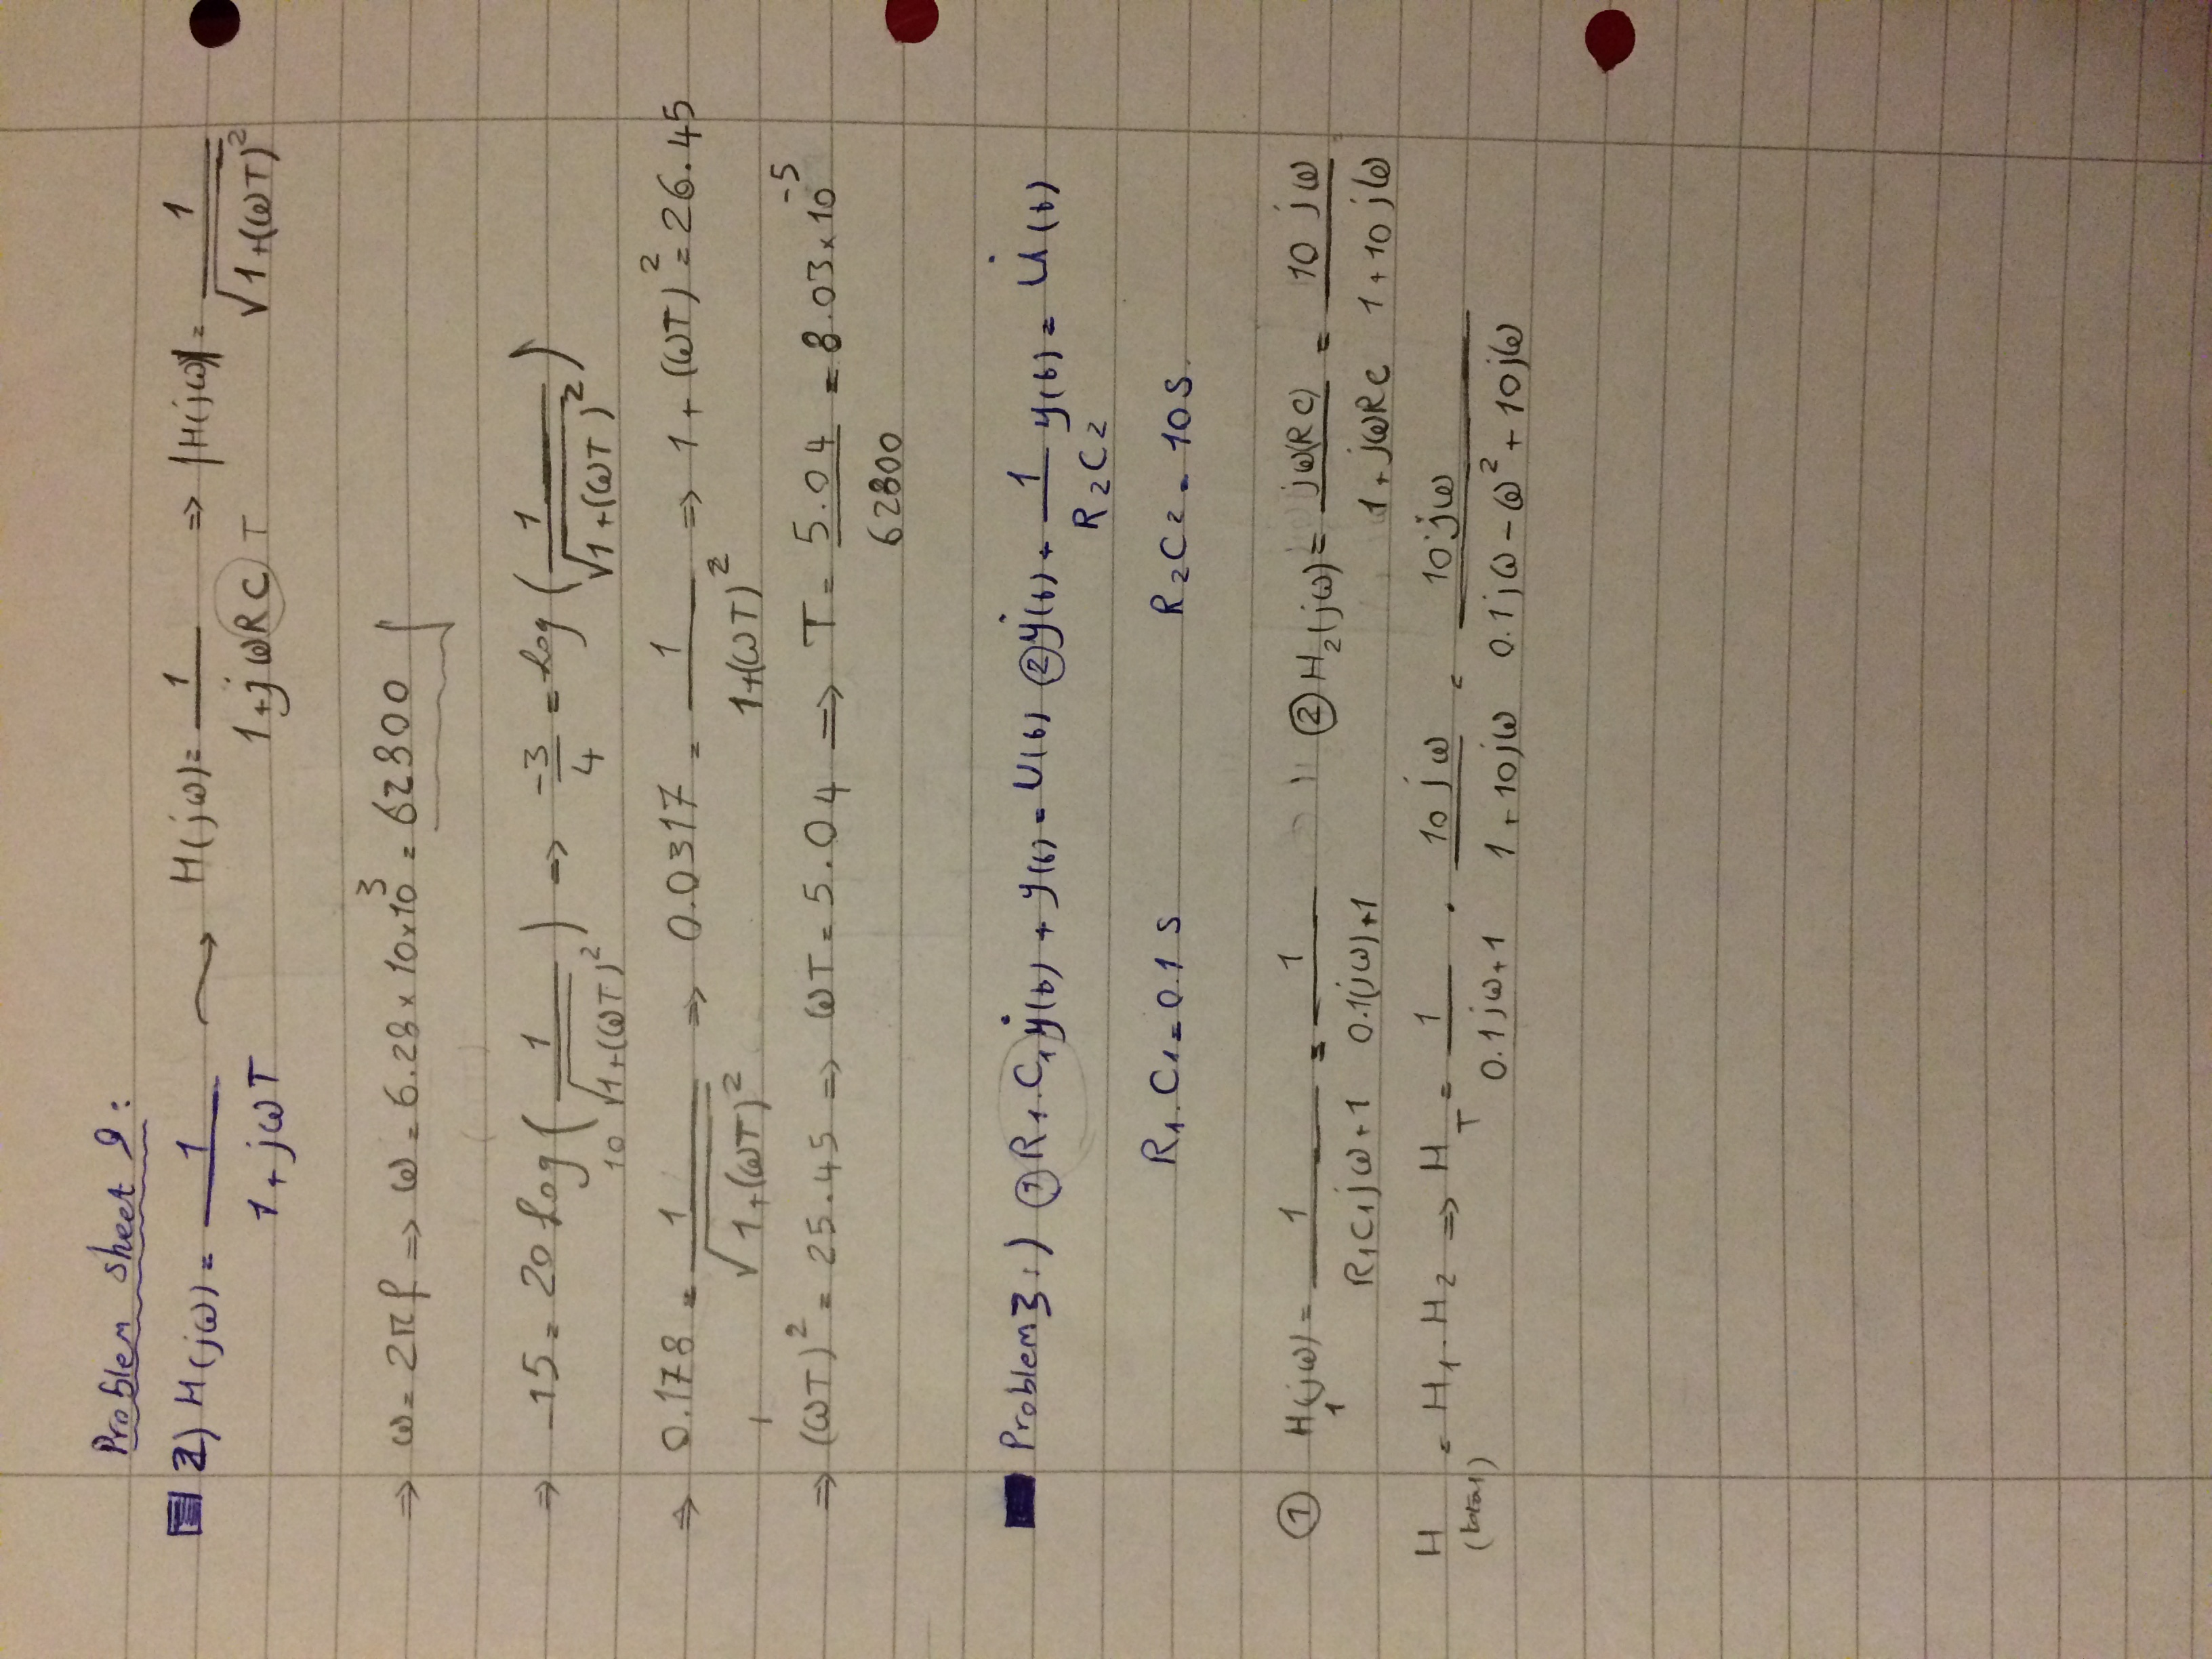 Problem sheet 9:
2) H(jω) = 1/(1+jωT) ⟿ H(jω) = 1/(1+jωRC) T ⇒ |H(jω)| = 1/√(1+(ωT)²)
⇒ ω = 2πf ⇒ ω = 6.28 × 10×10³ = 62800
⇒ -15 = 20 log₁₀(1/√(1+(ωT)²)) ⇒ -3/4 = log(1/√(1+(ωT)²))
⇒ 0.178 = 1/√(1+(ωT)²) ⇒ 0.0317 = 1/(1+(ωT)²) ⇒ 1+(ωT)² = 26.45
⇒ (ωT)² = 25.45 ⇒ ωT = 5.04 ⇒ T = 5.04/62800 = 8.03×10⁻⁵
Problem 3:) ① R₁.C₁ẏ(t) + y(t) = U(t) ② ẏ(t) + 1/(R₂C₂) y(t) = u̇(t)
R₁.C₁ = 0.1 s R₂C₂ = 10 s.
① H₁(jω) = 1/(R₁C₁jω+1) = 1/(0.1(jω)+1) ② H₂(jω) = jω(RC)/(1+jωRC) = 10jω/(1+10jω)
H(total) = H₁.H₂ ⇒ H_T = 1/(0.1jω+1) . 10jω/(1+10jω) = 10jω/(0.1jω-ω²+10jω)